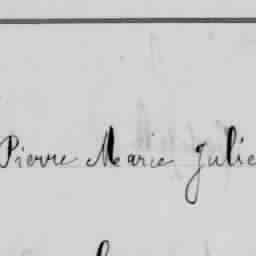 Pierre Marie Julie